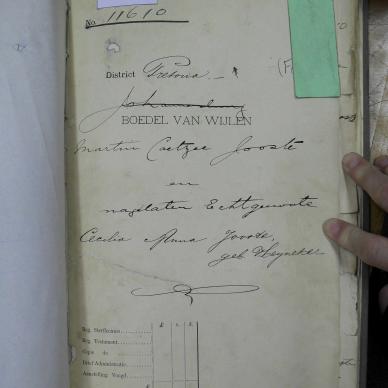 No. 11610
District Pretoria
Johannesburg
BOEDEL VAN WIJLEN
Martin Coetzee Jooste
en
nagelaten Echtgenoote
Cecilia Anna Jooste,
geb Heyneker
£ s. d.
Reg. Sterfkennis
Reg. Testament
Copie do
Brief Administratie
Aanstelling Voogd